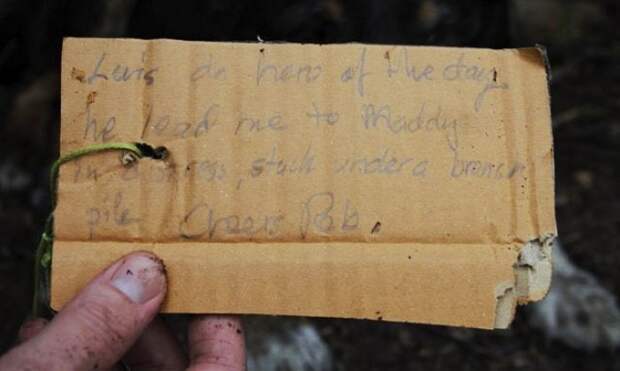 Leris an hero of the day
he lead me to Maddy
in distress, stuck under a branch
pile Cheers Rob.